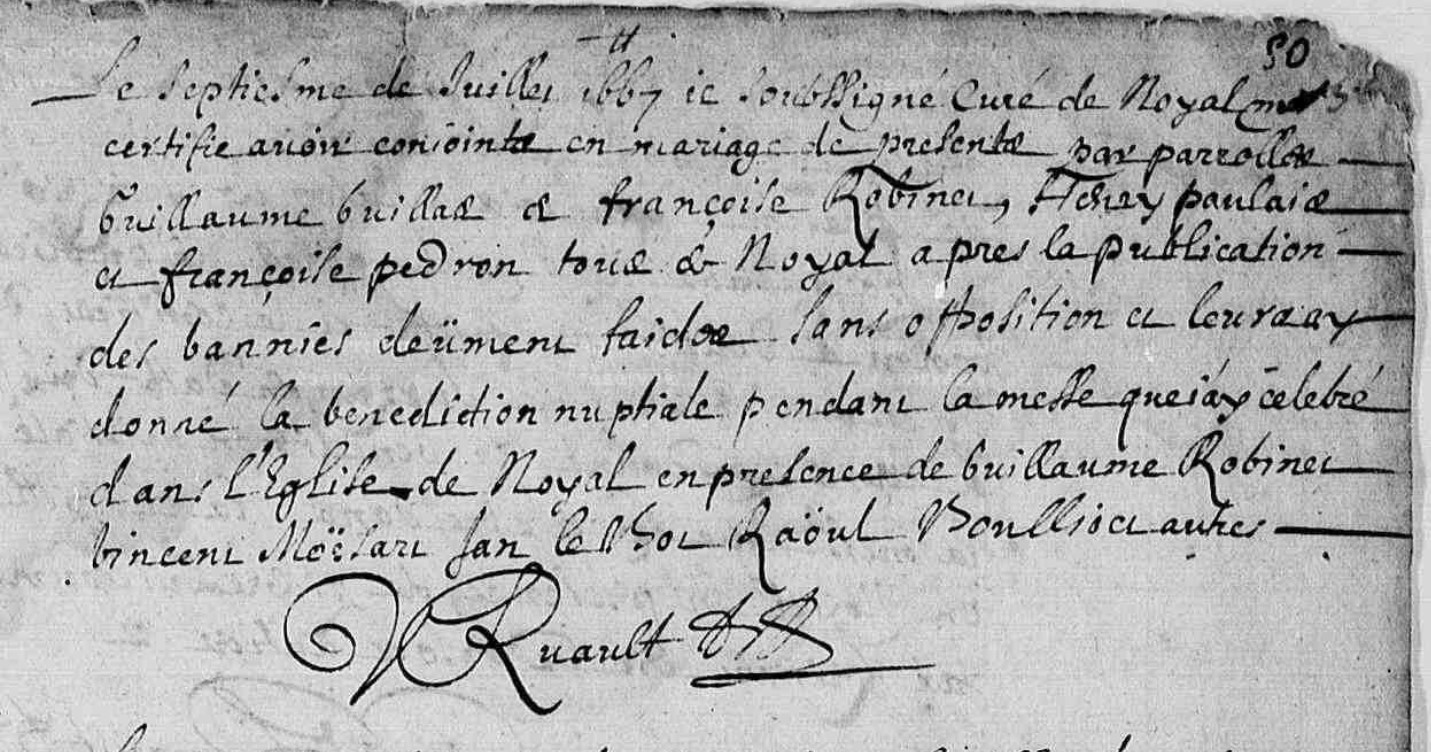 50
Le septiesme de Juillet 1667 ie soubssigné Curé de Noyal
certifie avoir conioints en mariage de presents par parrolles
Guillaume Guillas et françoise Robinet, Henry paulais
et françoise pedron tous de Noyal apres la publication
des bannies deüment faictes sans opposition et leurs ay
donné la benediction nuptiale pendant la messe que iáy celebré
dans l'Eglise de Noyal en presence de Guillaume Robinet
Vincent Jan Raöul et autres
Ruault